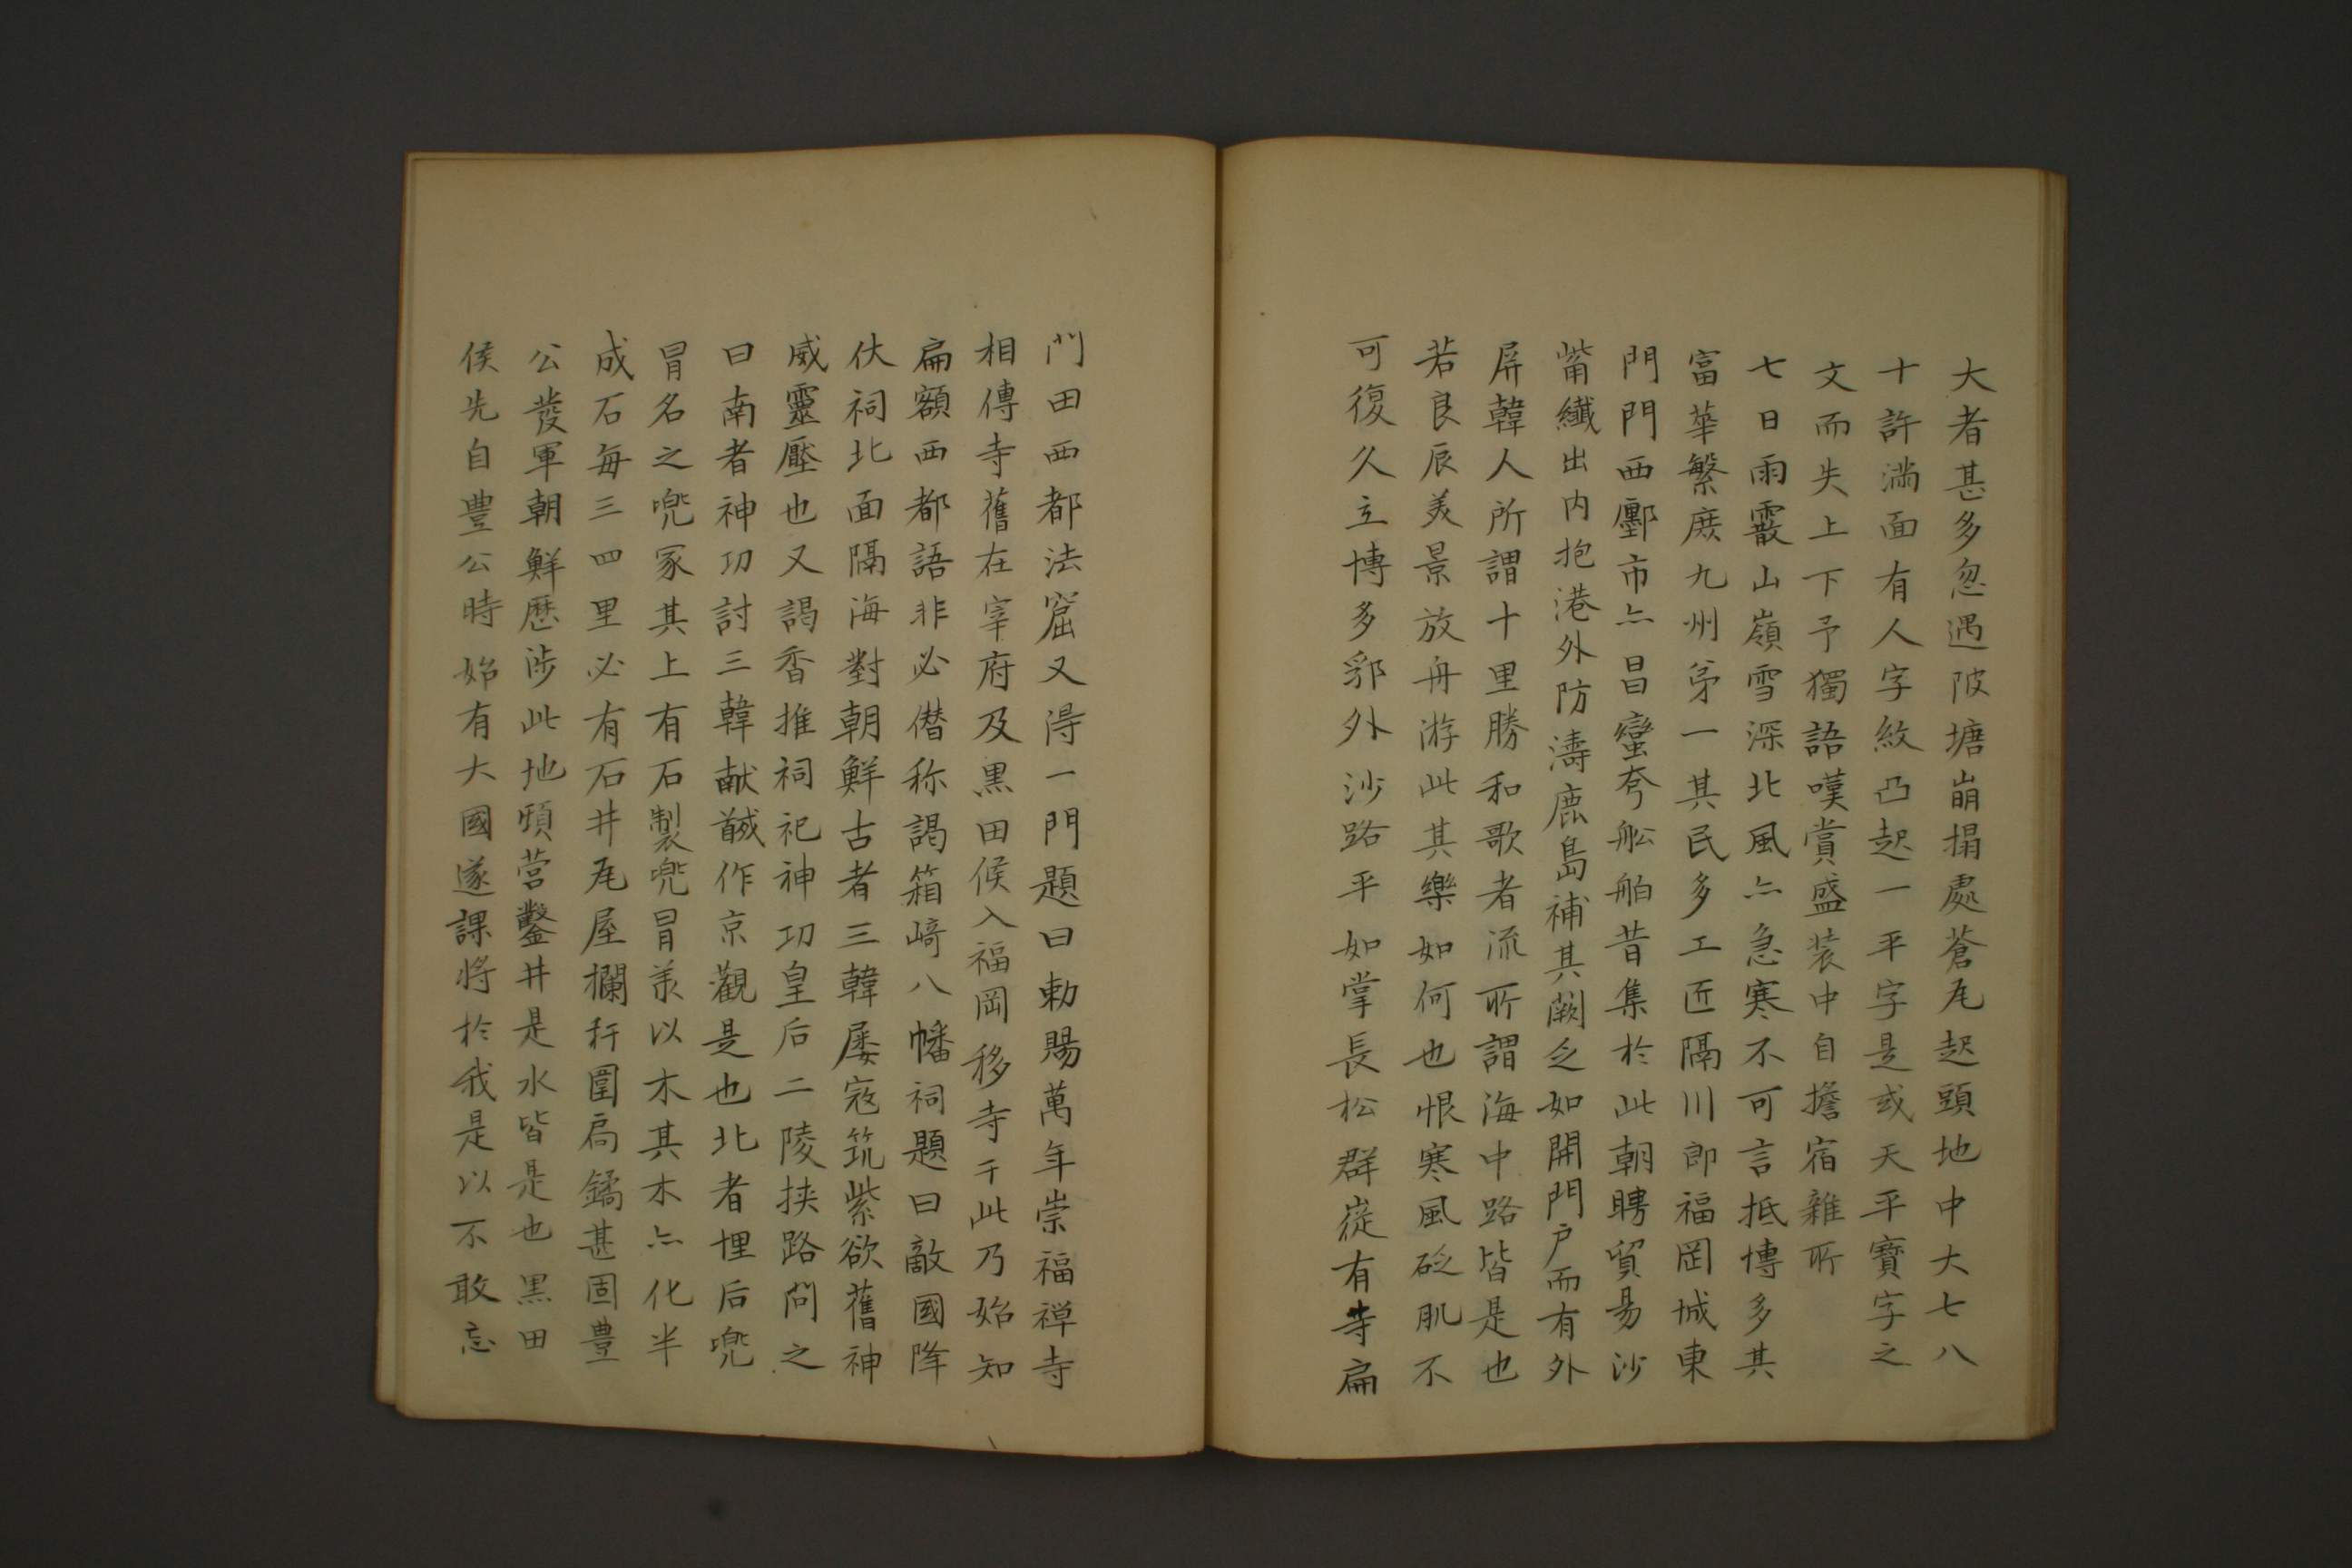 大者甚多忽遇陂塘崩搨處蒼瓦起頭地中大七八
十許滿面有人字紋凸起一平字是或天平寶字之
文而失上下予獨語嘆賞盛装中自擔宿雜所
七日雨霰山嶺雪深北風亦急寒不可言抵博多其
富華繁庶九州第一其民多工匠隔川即福岡城東
門門西鄽市亦昌蠻夸舩舶昔集於此朝聘貿易沙
觜纎出内抱港外防濤鹿島補其闕之如開門户而有外
屏韓人所謂十里勝和歌者流所謂海中路皆是也
若良辰美景放舟游此其樂如何也恨寒風砭肌不
可復久立博多郛外沙路平如掌長松群嵸有寺扁
門田西都法窟又淂一門題曰勅賜萬年崇福禅寺
相傳寺舊在宰府及黒田侯入福岡移寺于此乃始知
扁額西都語非必僣称謁箱﨑八幡祠題曰敵國降
伏祠北面隔海對朝鮮古者三韓屡寇筑紫欲舊神
威靈壓也又謁香推祠祀神功皇后二陵挟路問之
曰南者神功討三韓献馘作京觀是也北者埋后兜
冒名之兜冢其上有石製兜冒羕以木其木亦化半
成石毎三四里必有石井瓦屋欄杆圍扃鐍甚固豊
公發軍朝鮮歴渉此地頓营鑿井是水皆是也黒田
侯先自豊公時始有大國遂課将於我是以不敢忘